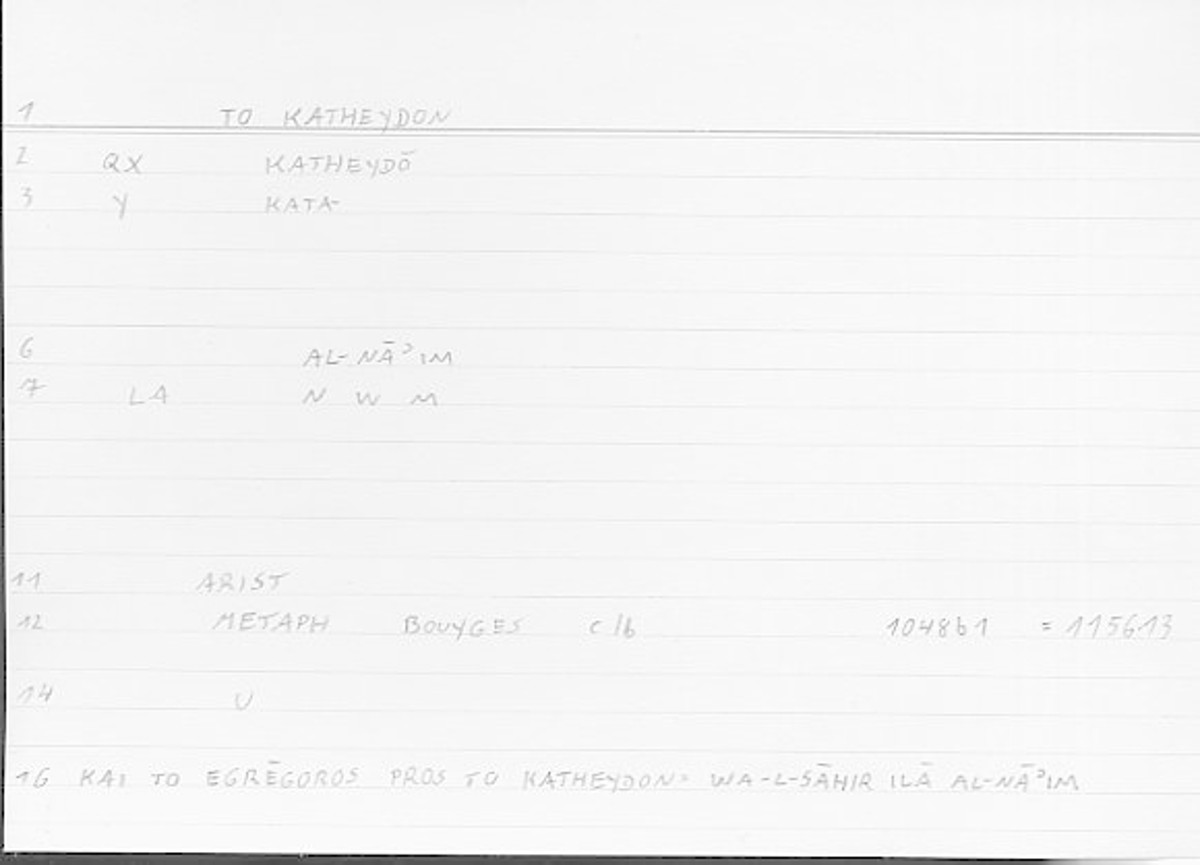 1 TO KATHEYDON
2 QX KATHEYDŌ
3 Y KATA-
6 AL-NĀʾIM
7 LA N W M
11 ARIST
12 METAPH BOUYGES c/b 1048b1 = 115613
14 U
16 KAI TO EGRĒGOROS PROS TO KATHEYDON= WA-L-SĀHIR ILĀ AL-NĀʾIM